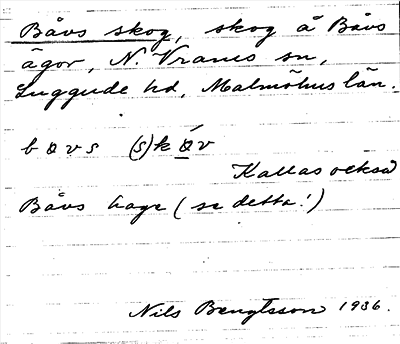 Båvs skog, skog å Båvs
ägor, N. Vrams sn,
Luggude hd, Malmöhus län.
bɑvs (s)kɑ́v
Kallas också
Båvs hage (se detta!)
Nils Bengtsson 1936.